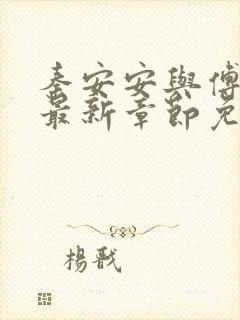 秦安安與傅
最新章節免
楊戩